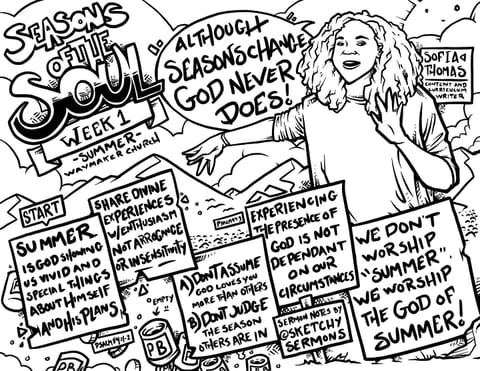 SEASONS
OF THE
SOUL
WEEK 1
-SUMMER-
WAYMAKER CHURCH
ALTHOUGH
SEASONS CHANGE
GOD NEVER
DOES!
SOFIA
THOMAS
CONTENT AND
CURRICULUM
WRITER
START
SUMMER
IS GOD SHOWING
US VIVID AND
SPECIAL THINGS
ABOUT HIMSELF
AND HIS PLANS
PSALM 19:1-2
SHARE DIVINE
EXPERIENCES
W/ENTHUSIASM
NOT ARROGANCE
OR INSENSITIVITY
EMPTY
PB
PB
A) DON'T ASSUME
GOD LOVES YOU
MORE THAN OTHERS
B) DON'T JUDGE
THE SEASON
OTHERS ARE IN
EXPERIENCING
THE PRESENCE OF
GOD IS NOT
DEPENDANT
ON OUR
CIRCUMSTANCES
SERMON NOTES BY
@SKETCHY
SERMONS
WE DON'T
WORSHIP
"SUMMER".
WE WORSHIP
THE GOD OF
SUMMER!